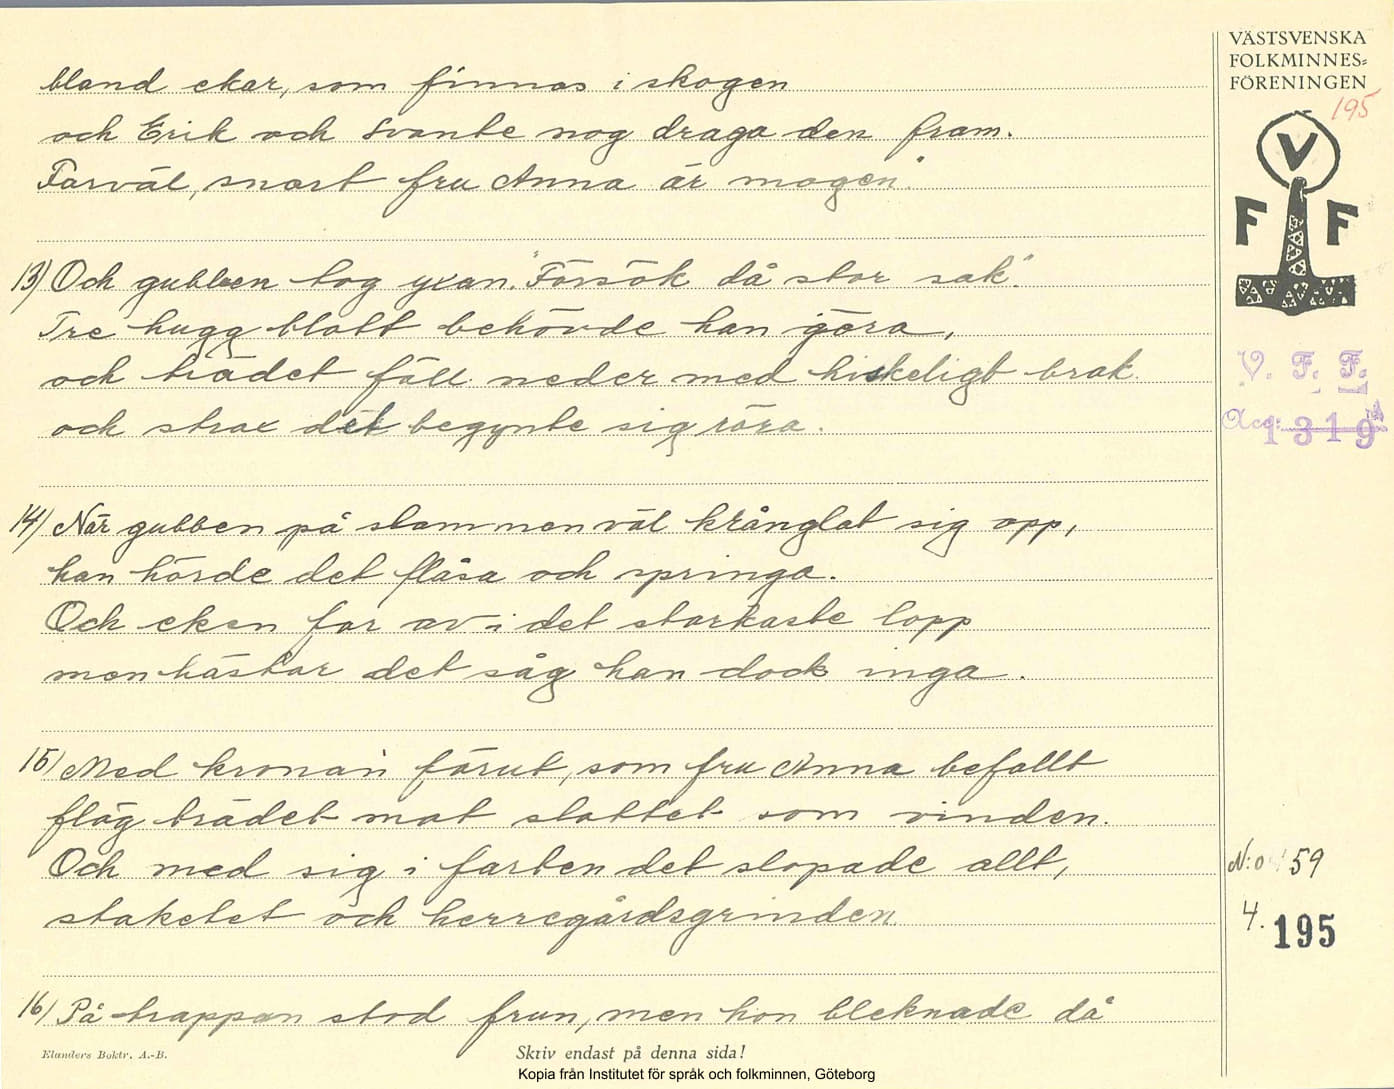 bland ekar, som finnas i skogen
och Erik och Svante nog draga den fram.
Farväl, snart fru Anna är mogen".
13) Och gubben tog yxan. "Försök då stor sak".
Tre hugg blott behövde han göra,
och trädet föll neder med hiskeligt brak
och strax det begynte sig röra.
14) När gubben på stammen väl krånglat sig opp,
han hörde det flåsa och springa.
Och eken far av i det starkaste lopp
men hästar det såg han dock inga.
15) Med kronan förut, som fru Anna befallt
flög trädet mot slottet som vinden.
Och med sig i farten det slopade allt,
staketet och herregårdsgrinden
16) På trappan stod frun, men hon bleknade då
Elanders Boktr. A.-B.
Skriv endast på denna sida!
Kopia från Institutet för språk och folkminnen, Göteborg
VÄSTSVENSKA
FOLKMINNES=
FÖRENINGEN
195
V
F F
V. F. F.
Acc: 1319
N:o 59
4. 195